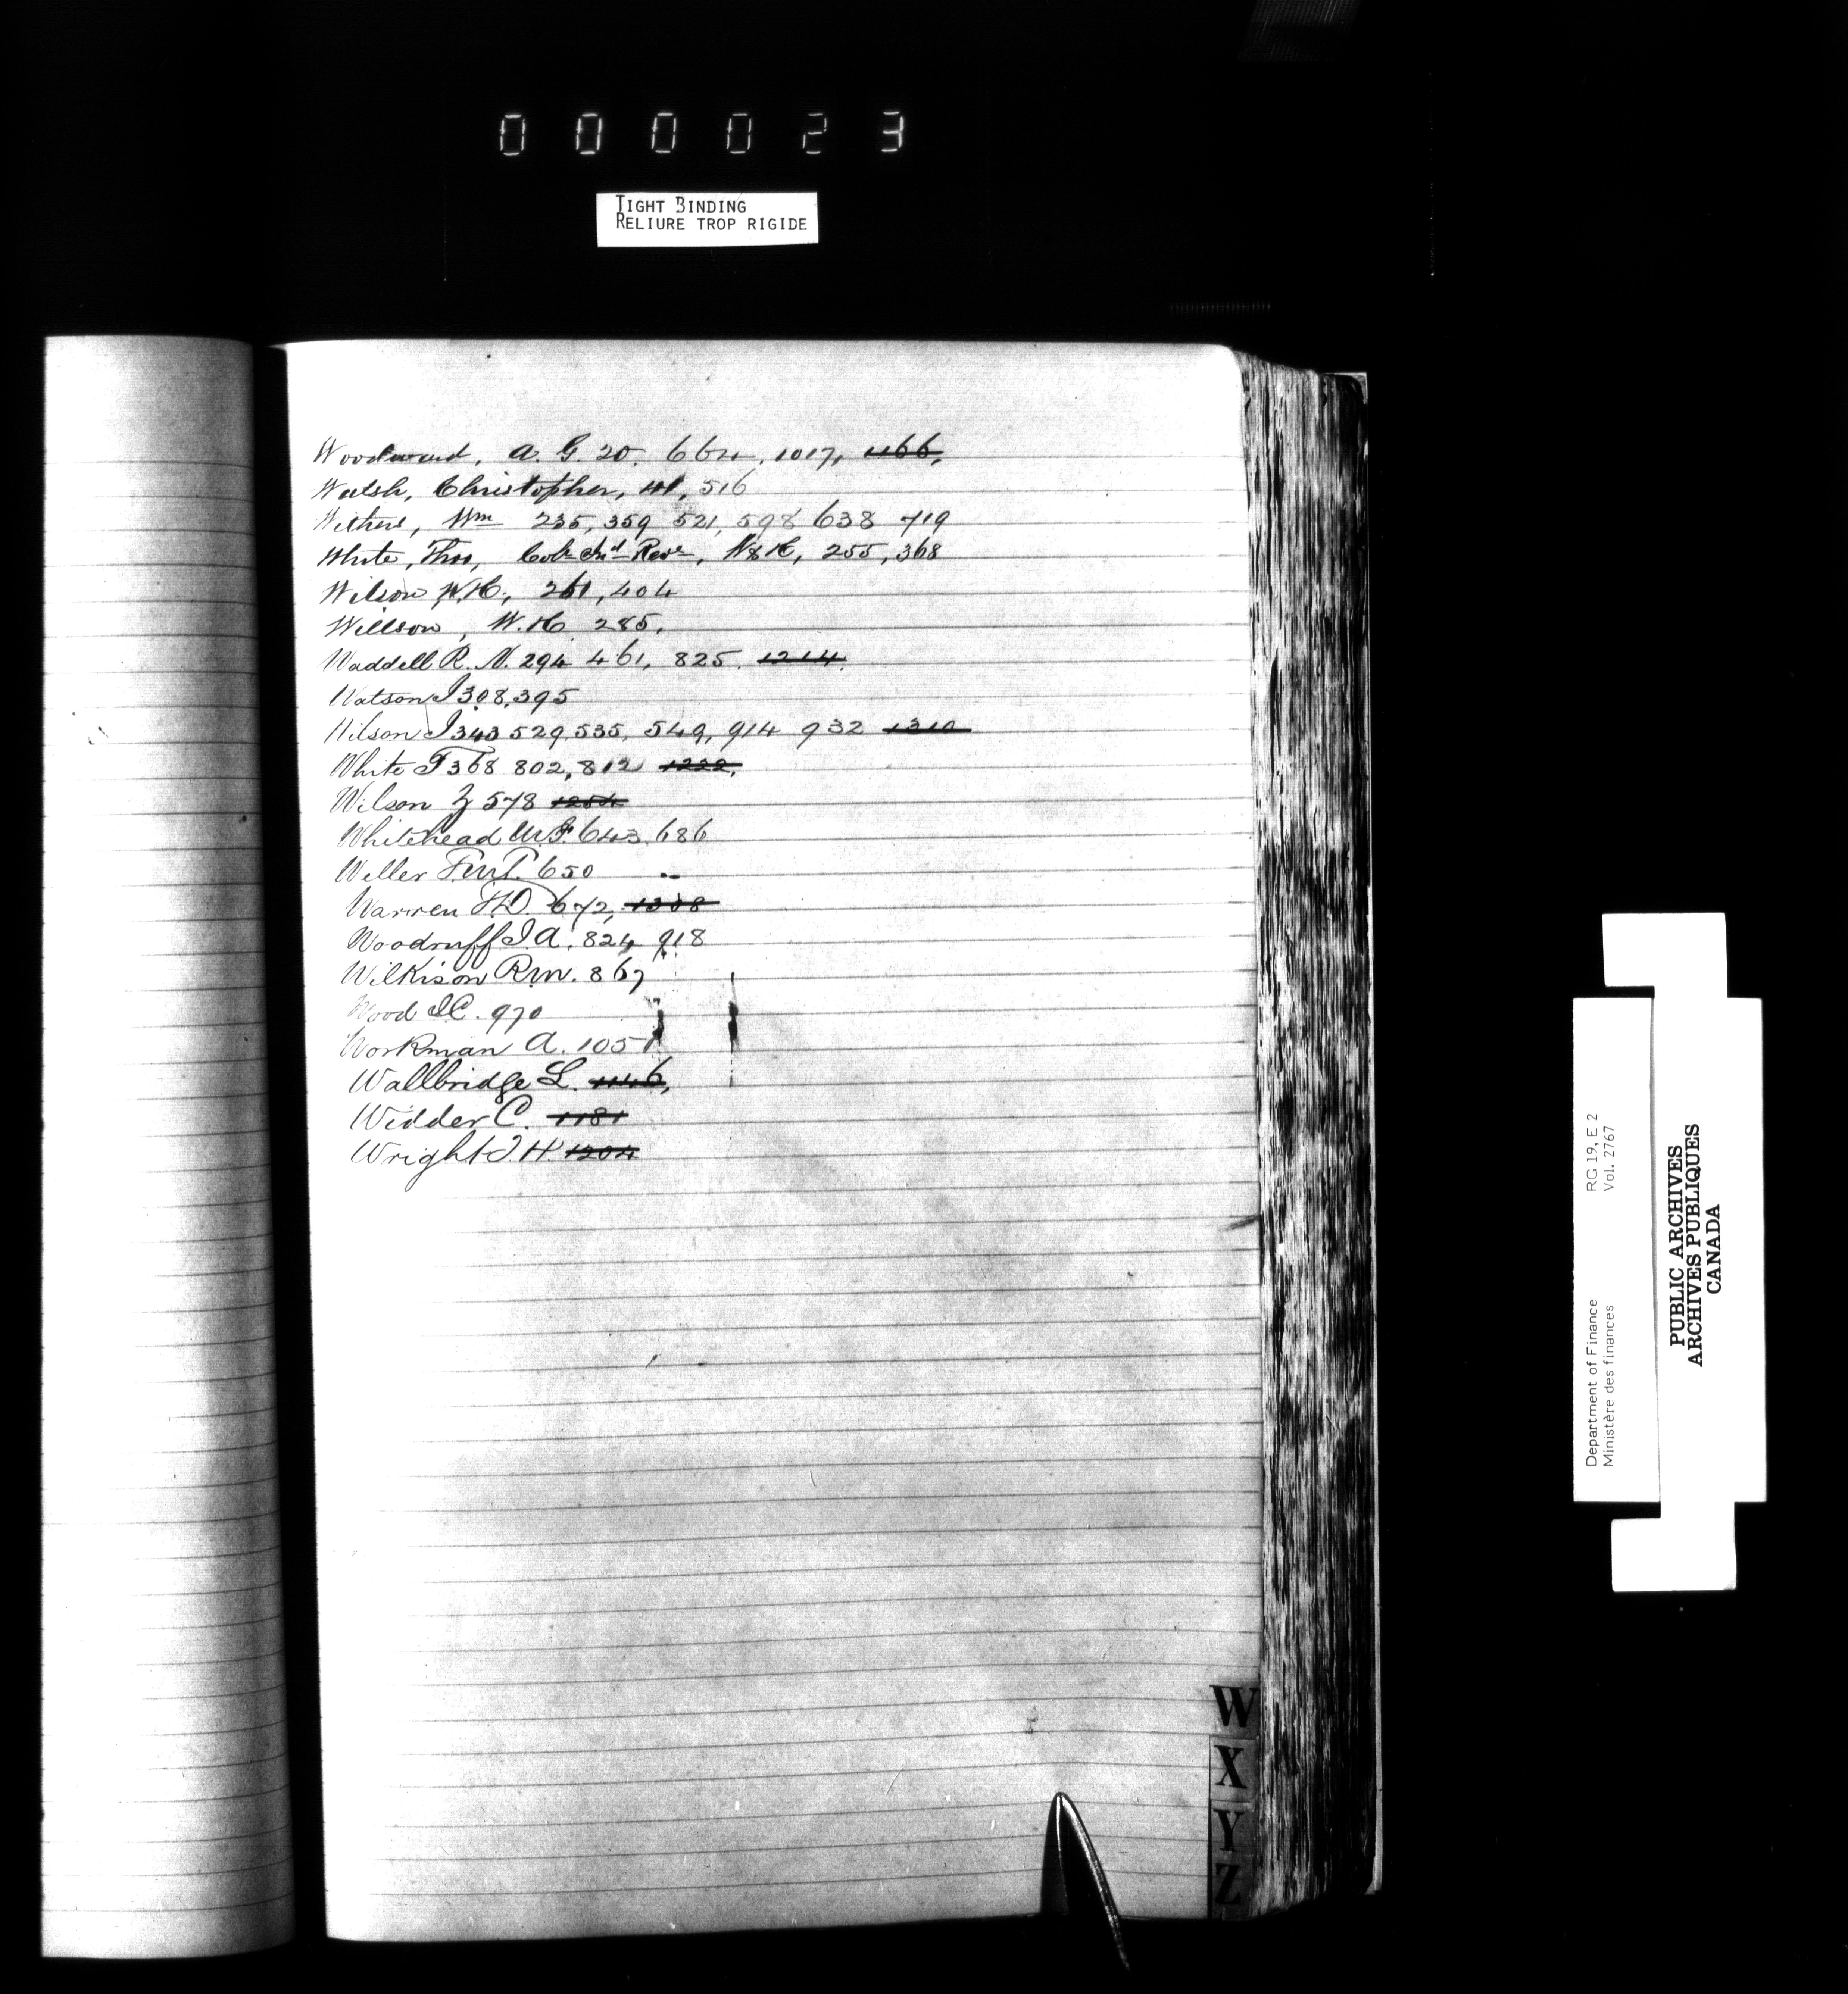 000023
TIGHT BINDING
RELIURE TROP RIGIDE
Woodward, A. G. 20, 664, 1017, 1166,
Walsh, Christopher, 141, 516
Withers, Wm 235, 359 521, 598 638 719
White, Thos, Colr Ind Reve, N&K, 255, 368
Wilson W.H., 261, 404
Willson, W.H. 285,
Waddell R. N. 294 461, 825. 1214.
Watson J 308, 395
Wilson J 343 529, 535, 549, 914 932 1310
White T 368 802, 812 1222,
Wilson 578 1254
Whitehead 643, 686
Weller 650
Warren F.D. 672, 1308
Woodruff J A. 824, 918
Wilkison R.W. 867
Wood J C. 970
Workman A. 1051
Wallbridge L. 1146,
Widder C. 1181
Wright J. H. 1204
W
X
Y
Z
Department of Finance RG 19, E 2
Ministère des finances Vol. 2767
PUBLIC ARCHIVES
ARCHIVES PUBLIQUES
CANADA